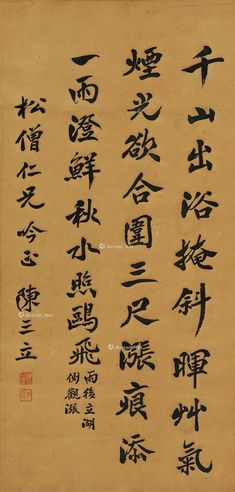 千山出浴掩斜暉艸氣
煙光欲合圍三尺漲痕添
一雨澄鮮秋水照鷗飛
雨後立湖
側觀漲
松僧仁兄吟正
陳三立